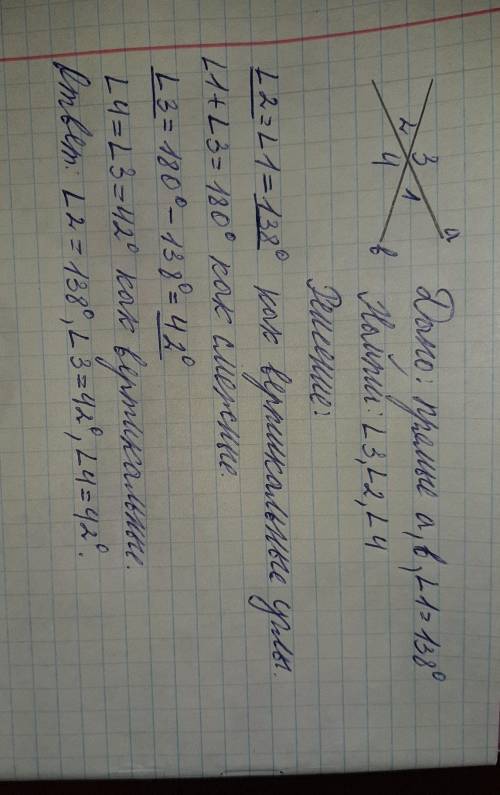 a
3 1
2 4
в
Дано: прямые a, в, ∠1=138°
Найти: ∠3, ∠2, ∠4
Решение:
∠2=∠1=138° как вертикальные углы.
∠1+∠3=180° как смежные.
∠3=180°-138°=42°
∠4=∠3=42° как вертикальные.
Ответ: ∠2=138°, ∠3=42°, ∠4=42°.